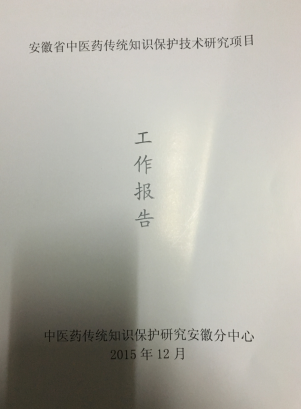 安徽省中医药传统知识保护技术研究项目
工作报告
中医药传统知识保护研究安徽分中心
2015年12月